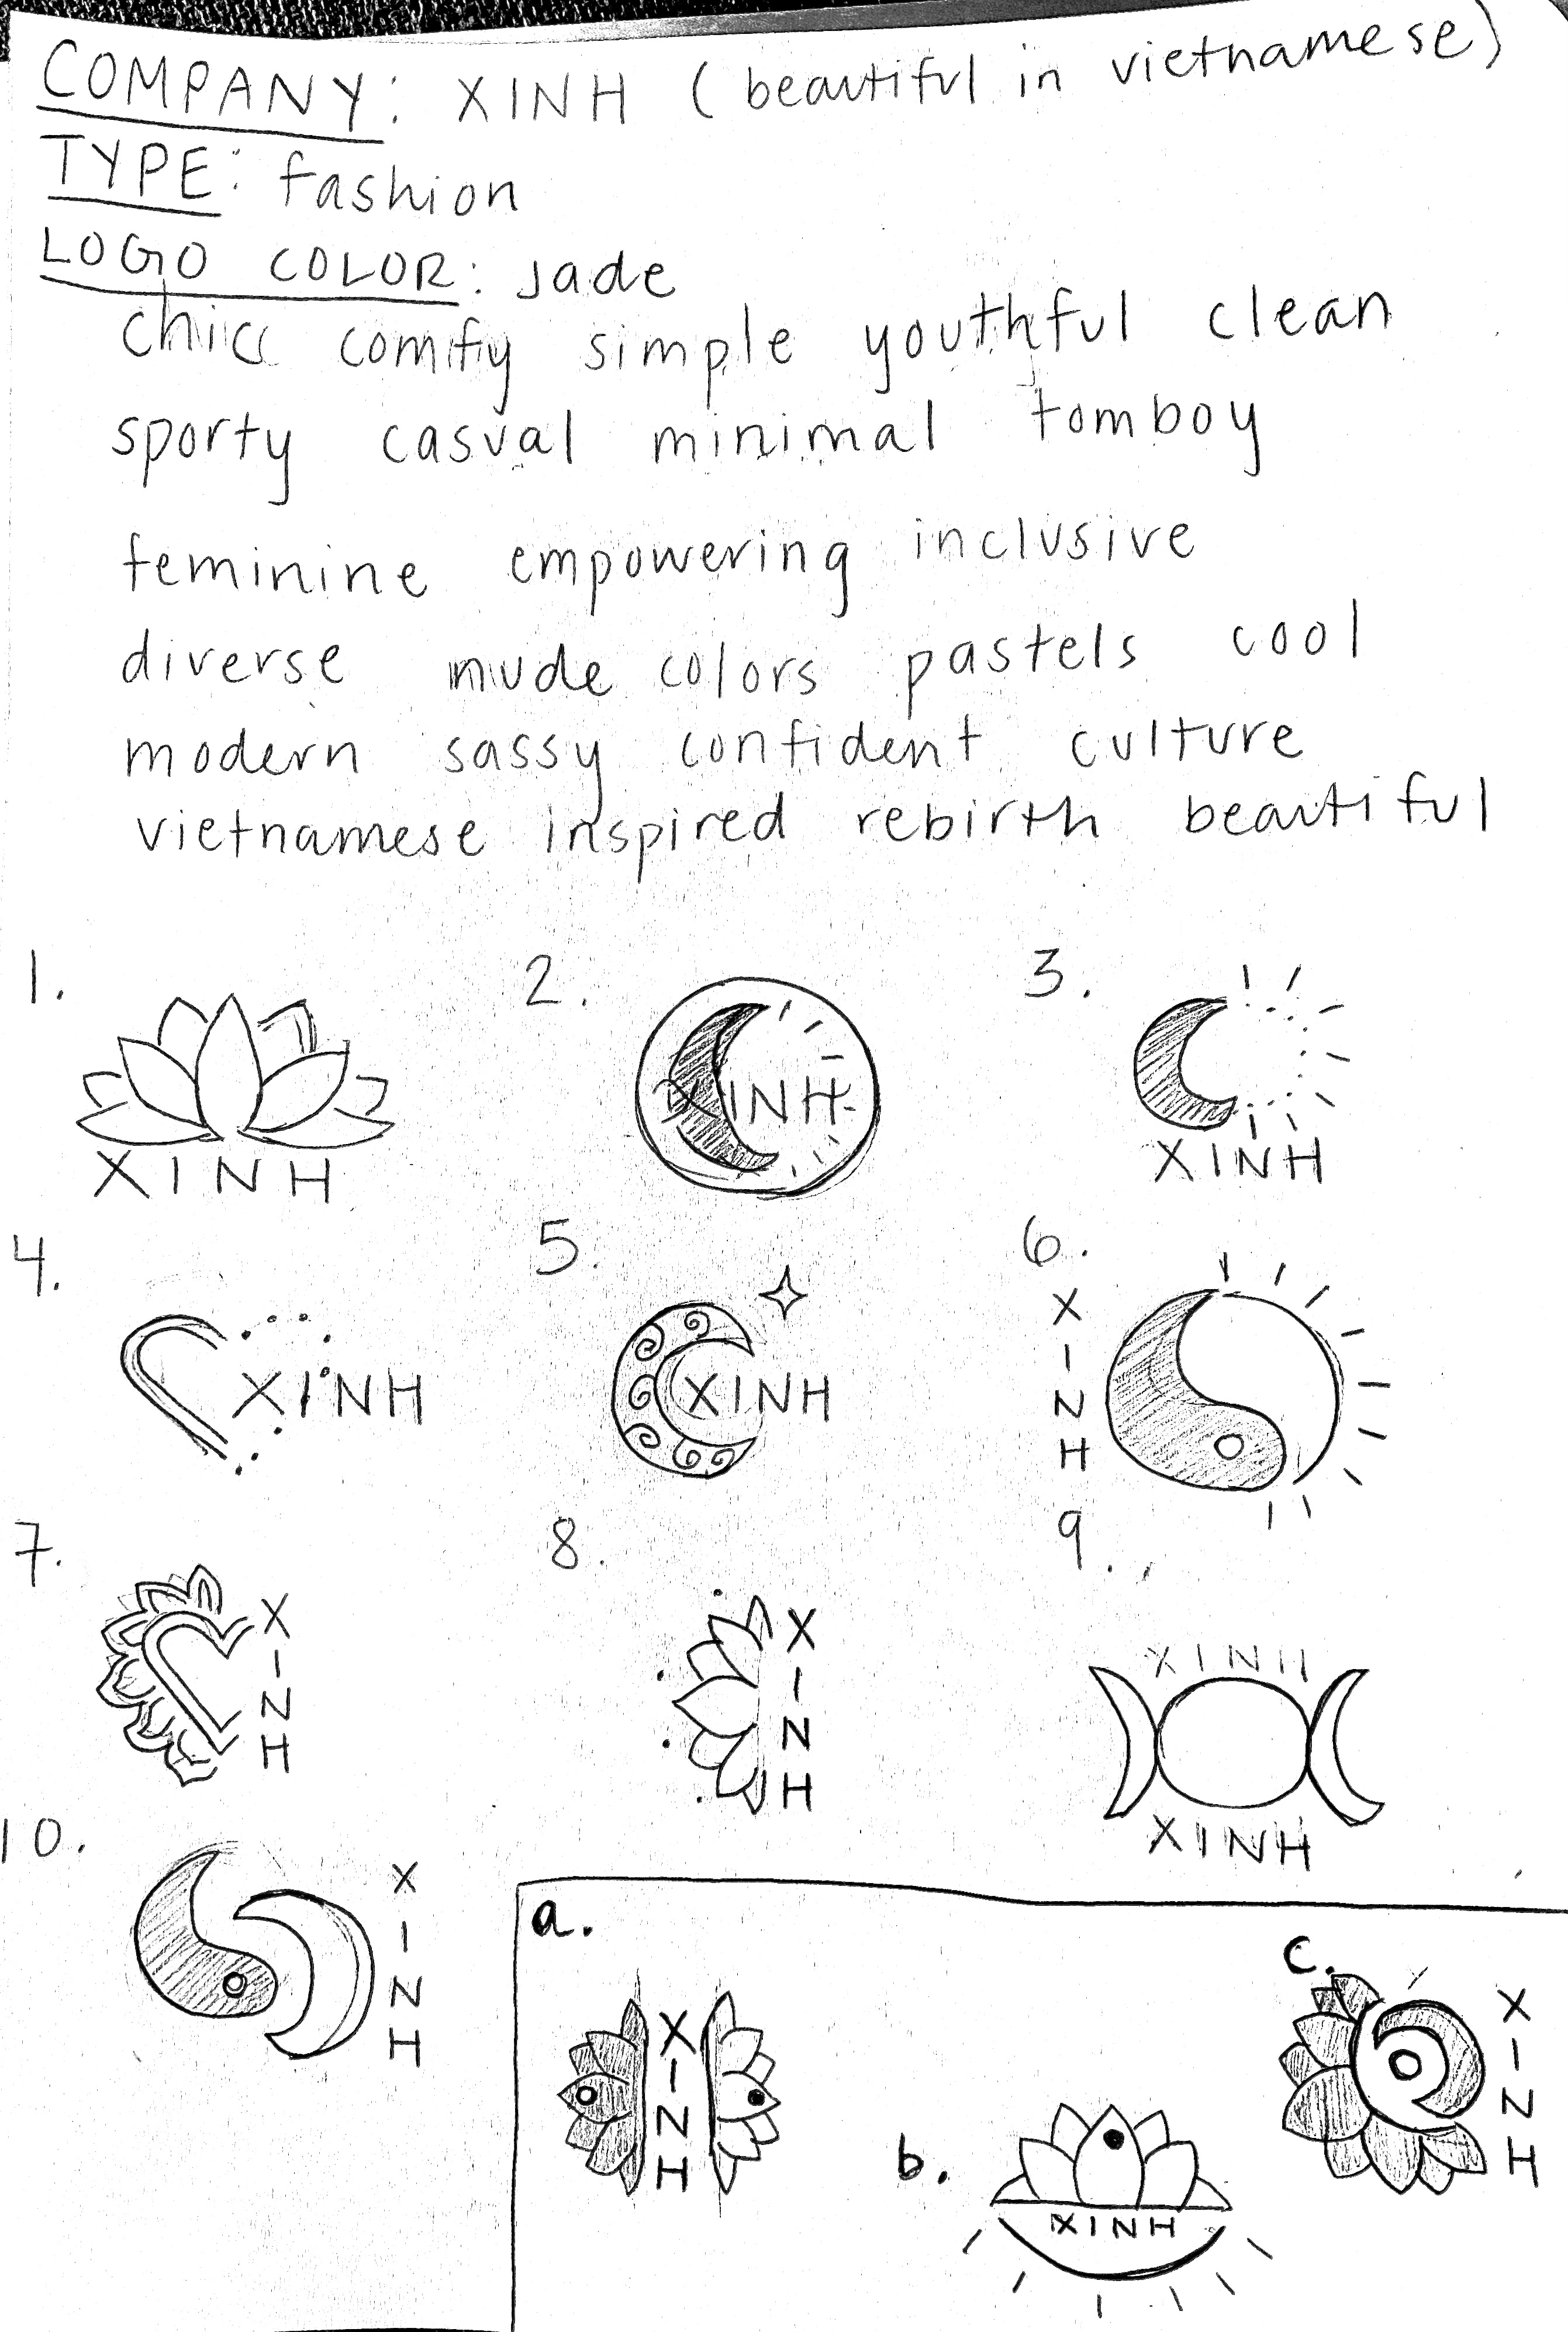 COMPANY: XINH (beautiful in vietnamese)
TYPE: fashion
LOGO COLOR: Jade
chic comfy simple youthful clean
sporty casual minimal tomboy
feminine empowering inclusive
diverse nude colors pastels cool
modern sassy confident culture
vietnamese inspired rebirth beautiful
1.
XINH
2.
XINH
3.
XINH
4.
XINH
5.
XINH
6.
XINH
7.
XINH
8.
XINH
9.
XINH
XINH
10.
XINH
a.
XINH
b.
XINH
c.
XINH